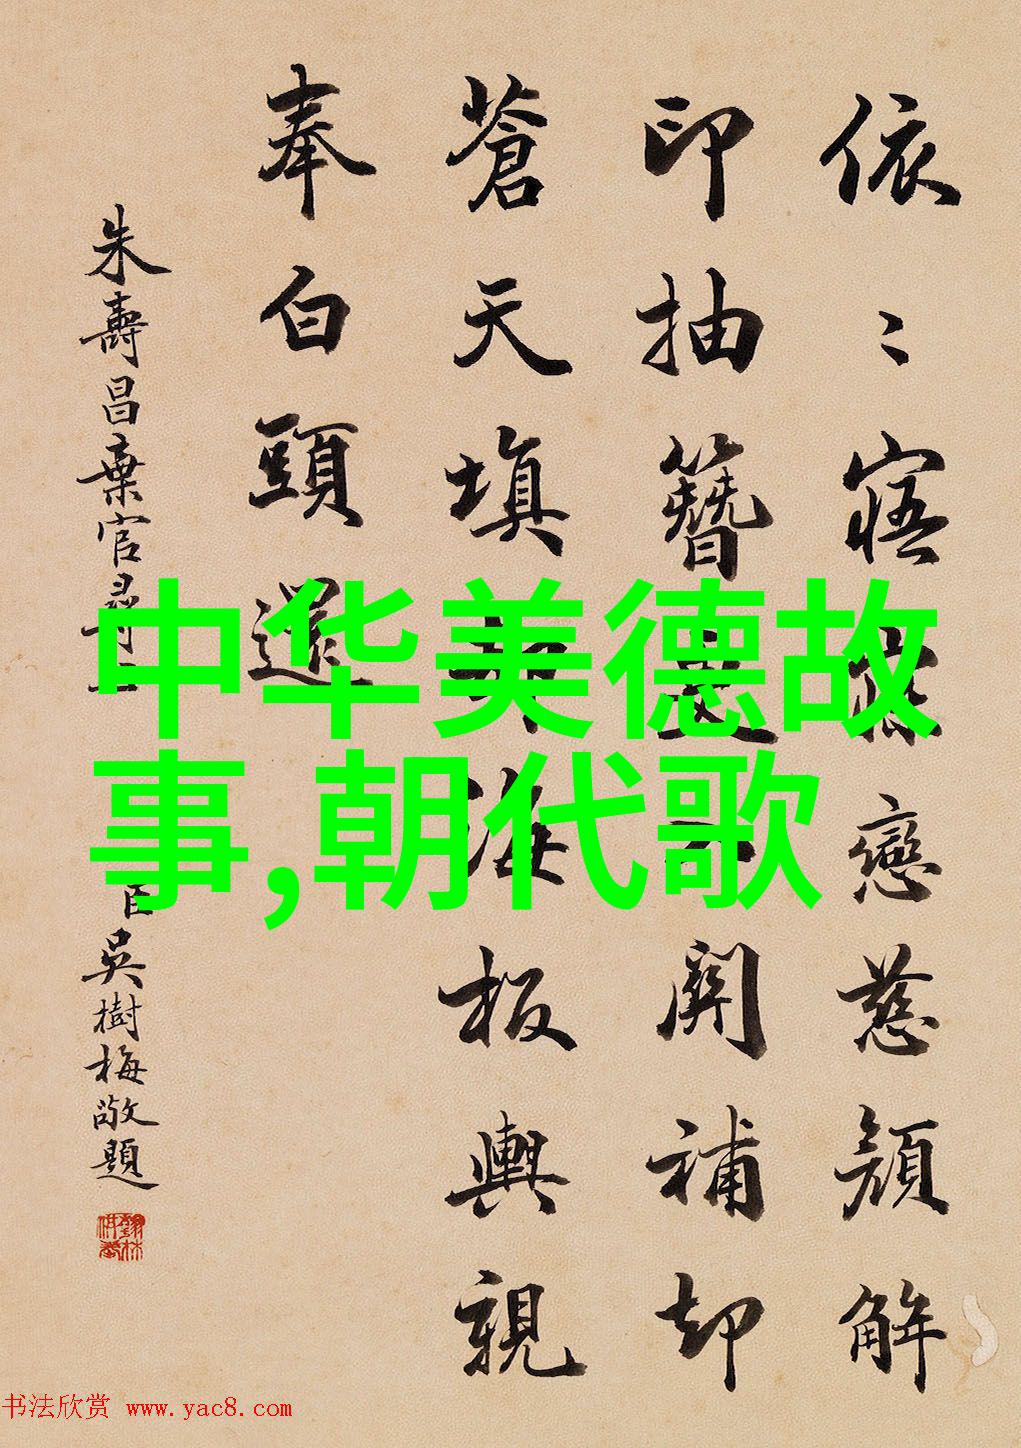 依〻寤戀慈顏解
印抽簪關補却
蒼天填海板輿親
奉白頭還
朱壽昌棄官尋
臣吳樹梅敬題
中华美德故
事,朝代歌
书法欣赏 www.yac8.com